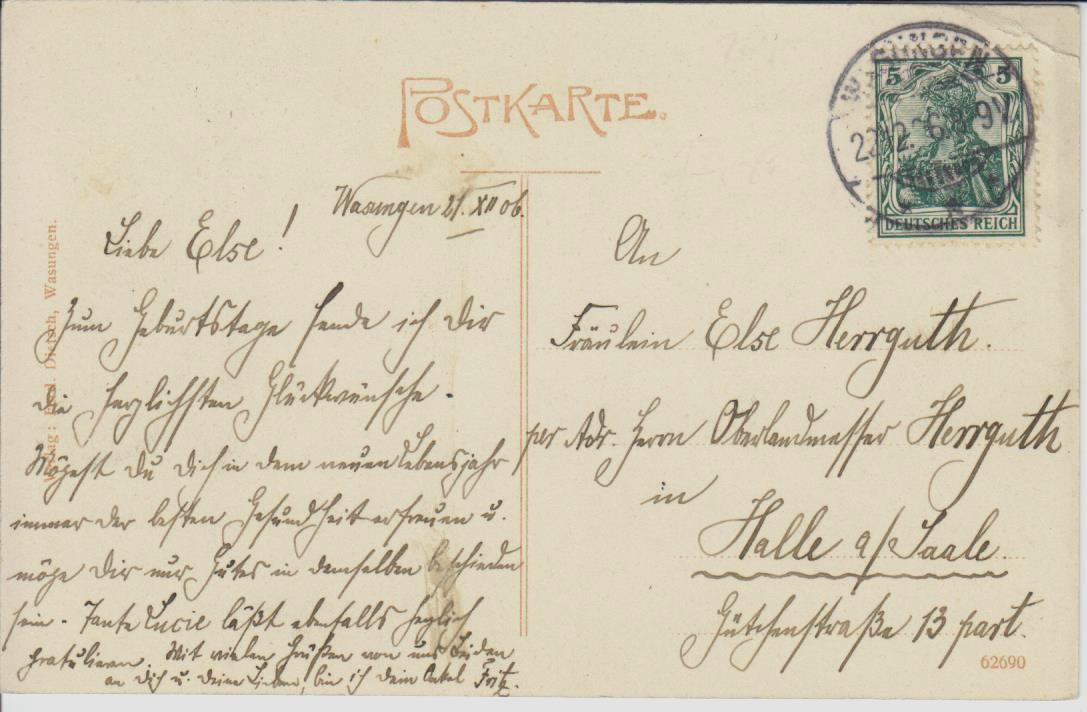 POSTKARTE.
WASUNGEN
5 5
DEUTSCHES REICH
Wasungen 21. XII 06.
Liebe Else!
Zum Geburtstage sende ich Dir
die herzlichsten Glückwünsche.
Mögest Du Dich in dem neuen Lebensjahr
immer der besten Gesundheit erfreuen u.
möge Dir nur Gutes in demselben beschieden
sein. Tante Lucie läßt ebenfalls herzlich
gratulieren. Mit vielen Grüßen von uns Beiden
an Dich u. Deine Lieben, bin ich Dein Onkel Fritz.
An
Fräulein Else Herrguth.
per Adr. Herrn Oberlandmesser Herrguth
in
Halle a/Saale.
Gütchenstraße 13 part.
62690
Verlag: Dittrich, Wasungen.